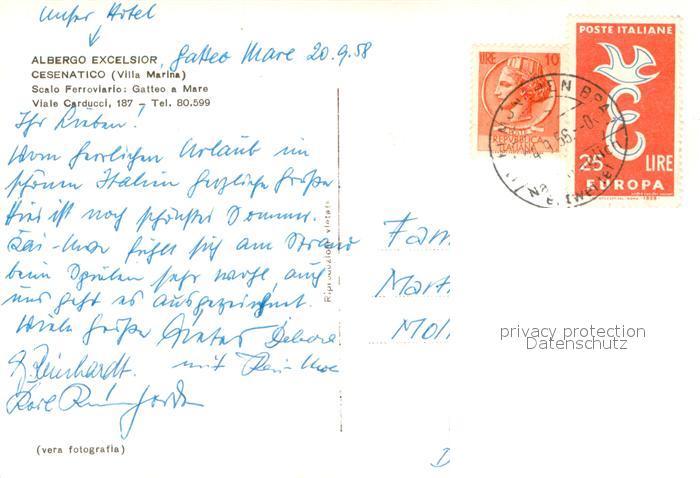 Unser Hotel
ALBERGO EXCELSIOR, Gatteo Mare 20.9.58
CESENATICO (Villa Marina)
Scalo Ferroviario: Gatteo a Mare
Viale Carducci, 187 - Tel. 80.599
Ihr Lieben!
Vom herrlichen Urlaub im
schönen Italien herzliche Grüße
Hier ist noch schönster Sommer.
Kai-Uwe fühlt sich am Strand
beim Spielen sehr wohl, auch
uns geht es ausgezeichnet.
Viele Grüße
mit
(vera fotografia)
Riproduzione vietata
LIRE 10
REPUBBLICA
ITALIANA
POSTE ITALIANE
25 LIRE
EUROPA
Fam
Mart
Mol
privacy protection
Datenschutz